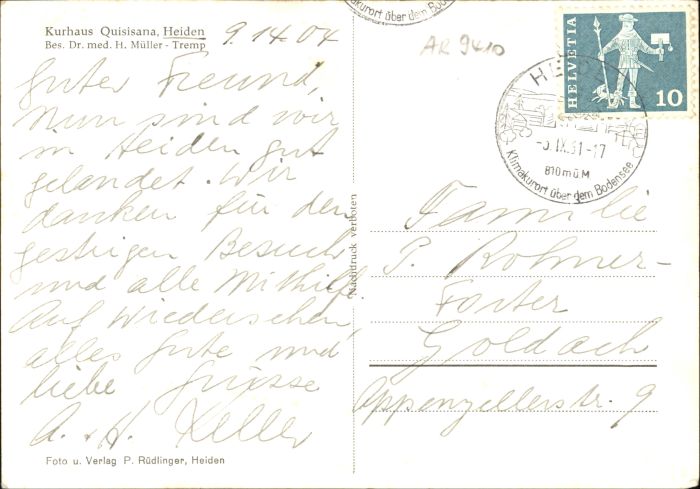 Kurhaus Quisisana, Heiden
Bes. Dr. med. H. Müller - Tremp
9.14.04
Guter Freund,
Nun sind wir
in Heiden gut
gelandet. Wir
danken für den
gestrigen Besuch
und alle Mithilfe.
Auf Wiedersehen,
alles Gute und
liebe Grüsse
A. + H. Keller
Foto u. Verlag P. Rüdlinger, Heiden
Nachdruck verboten
Klimakurort über dem Bodensee
AR 9410
HELVETIA
10
HEIDEN
-5.IX.61-17
810 m ü M
Klimakurort über dem Bodensee
Familie
P. Rohner-
Forster
Goldach
Appenzellerstr. 9